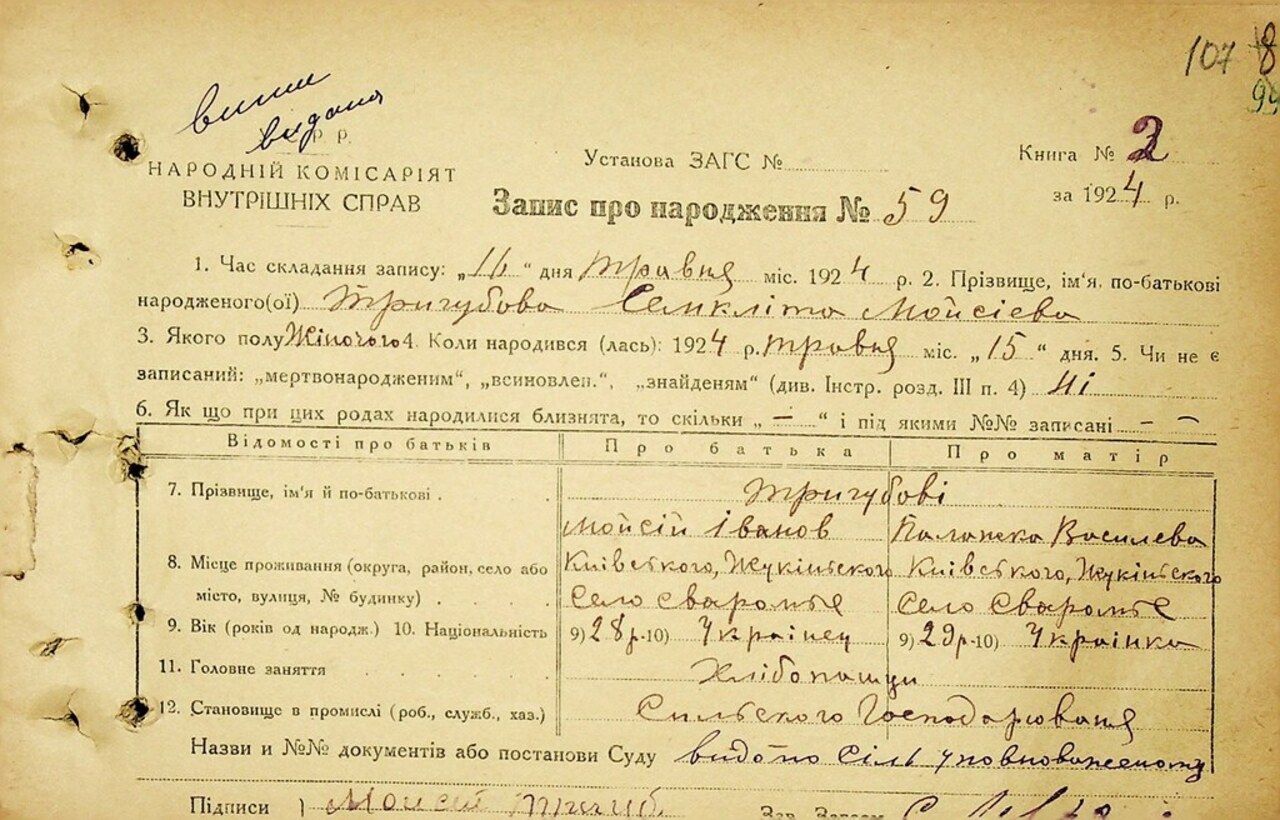 107 8
99
випис
видана
У. С. Р. Р.
НАРОДНІЙ КОМІСАРІЯТ
ВНУТРІШНІХ СПРАВ
Установа ЗАГС №
Книга № 2
за 1924 р.
Запис про народження № 59
1. Час складання запису: „16“ дня Травня міс. 1924 р. 2. Прізвище, ім'я, по-батькові
народженого(ої) Тригубова Семкліта Мойсієва
3. Якого полу Жіночого 4. Коли народився (лась): 1924 р. травня міс. „15“ дня. 5. Чи не є
записаний: „мертвонародженим“, „всиновлен.“, „знайденям“ (див. Інстр. розд. III п. 4) Ні
6. Як що при цих родах народилися близнята, то скільки „ – “ і під якими №№ записані – –
Відомості про батьків Про батька Про матір
7. Прізвище, ім'я й по-батькові . Тригубові
Мойсій Іванов Палажка Василева
8. Місце проживання (округа, район, село або Київського, Жукінського Київського, Жукінського
місто, вулиця, № будинку) . Село Сваромьє Село Сваромьє
9. Вік (років од народж.) 10. Національність 9) 28 р. 10) Українец 9) 29 р. 10) Українка
11. Головне заняття Хлібопашци
12. Становище в промислі (роб., служб., хаз.) Сильського Господарюваня
Назви и №№ документів або постанови Суду видано сіль уповноваженому
Підписи Моисей Тригуб